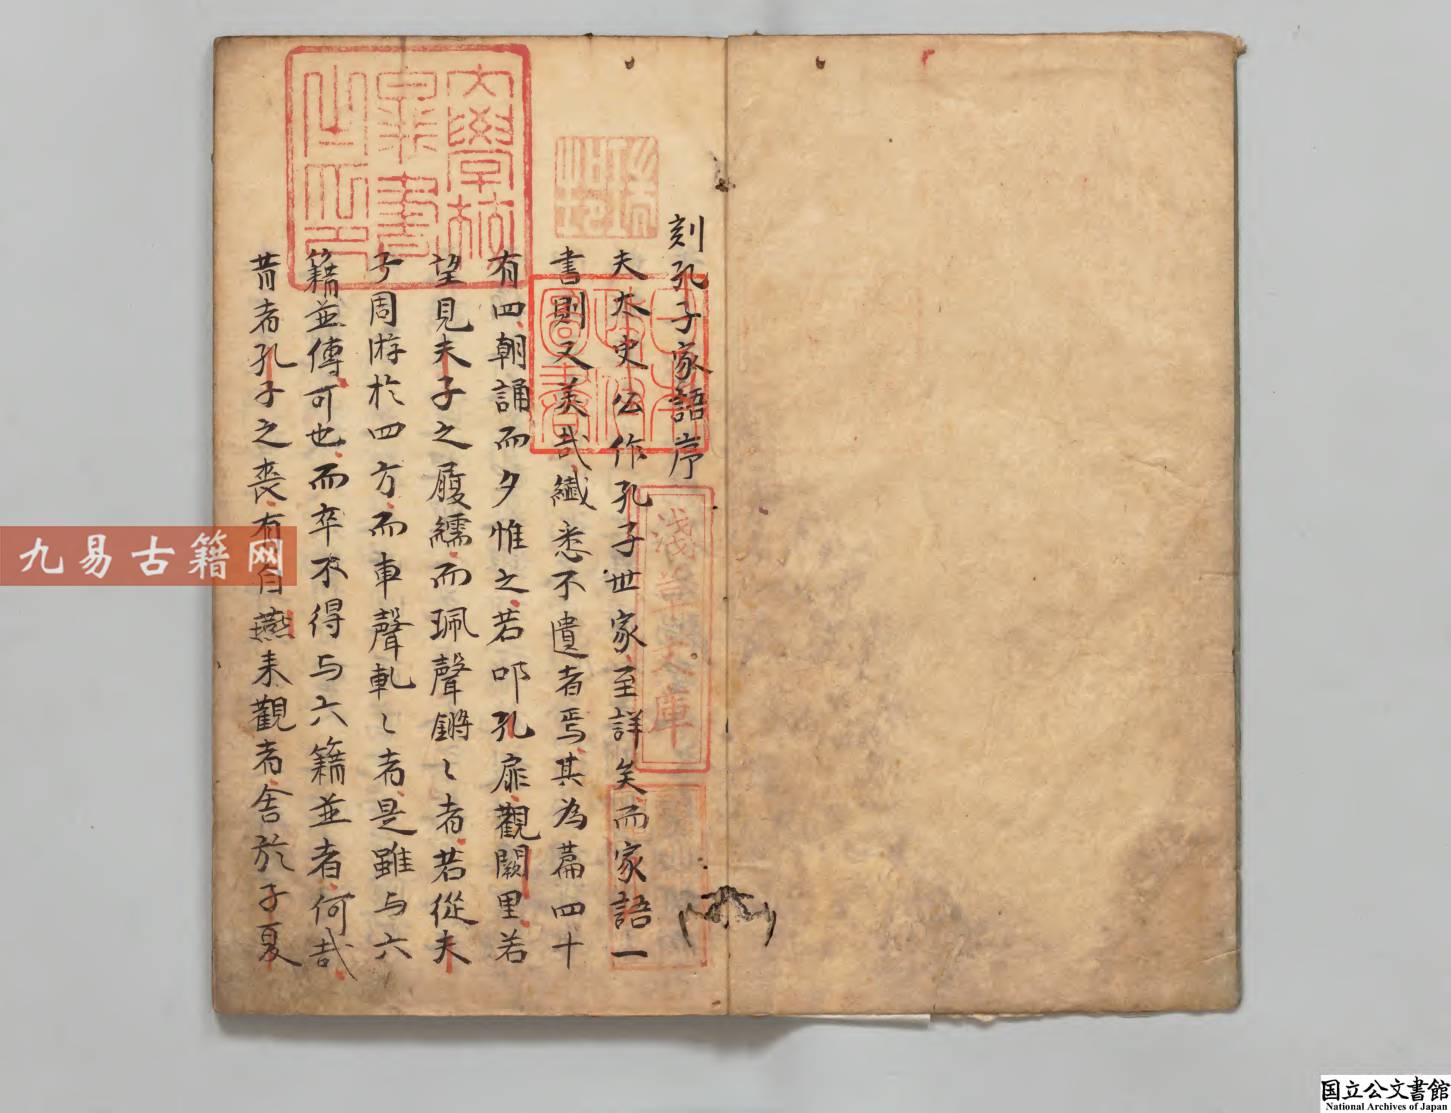 刻孔子家語序
夫太史公作孔子世家至詳矣而家語一
書則又美哉纎悉不遺者焉其為篇四十
有四朝誦而夕惟之若叩孔扉觀闕里若
望見夫子之履繻而珮聲鏘〻者若從夫
子周游於四方而車聲軋〻者是雖与六
籍並傳可也而卒不得与六籍並者何哉
昔者孔子之喪有自燕来觀者舍於子夏
大學校
圖書
淺草文庫
日本
九易古籍网
国立公文書館
National Archives of Japan